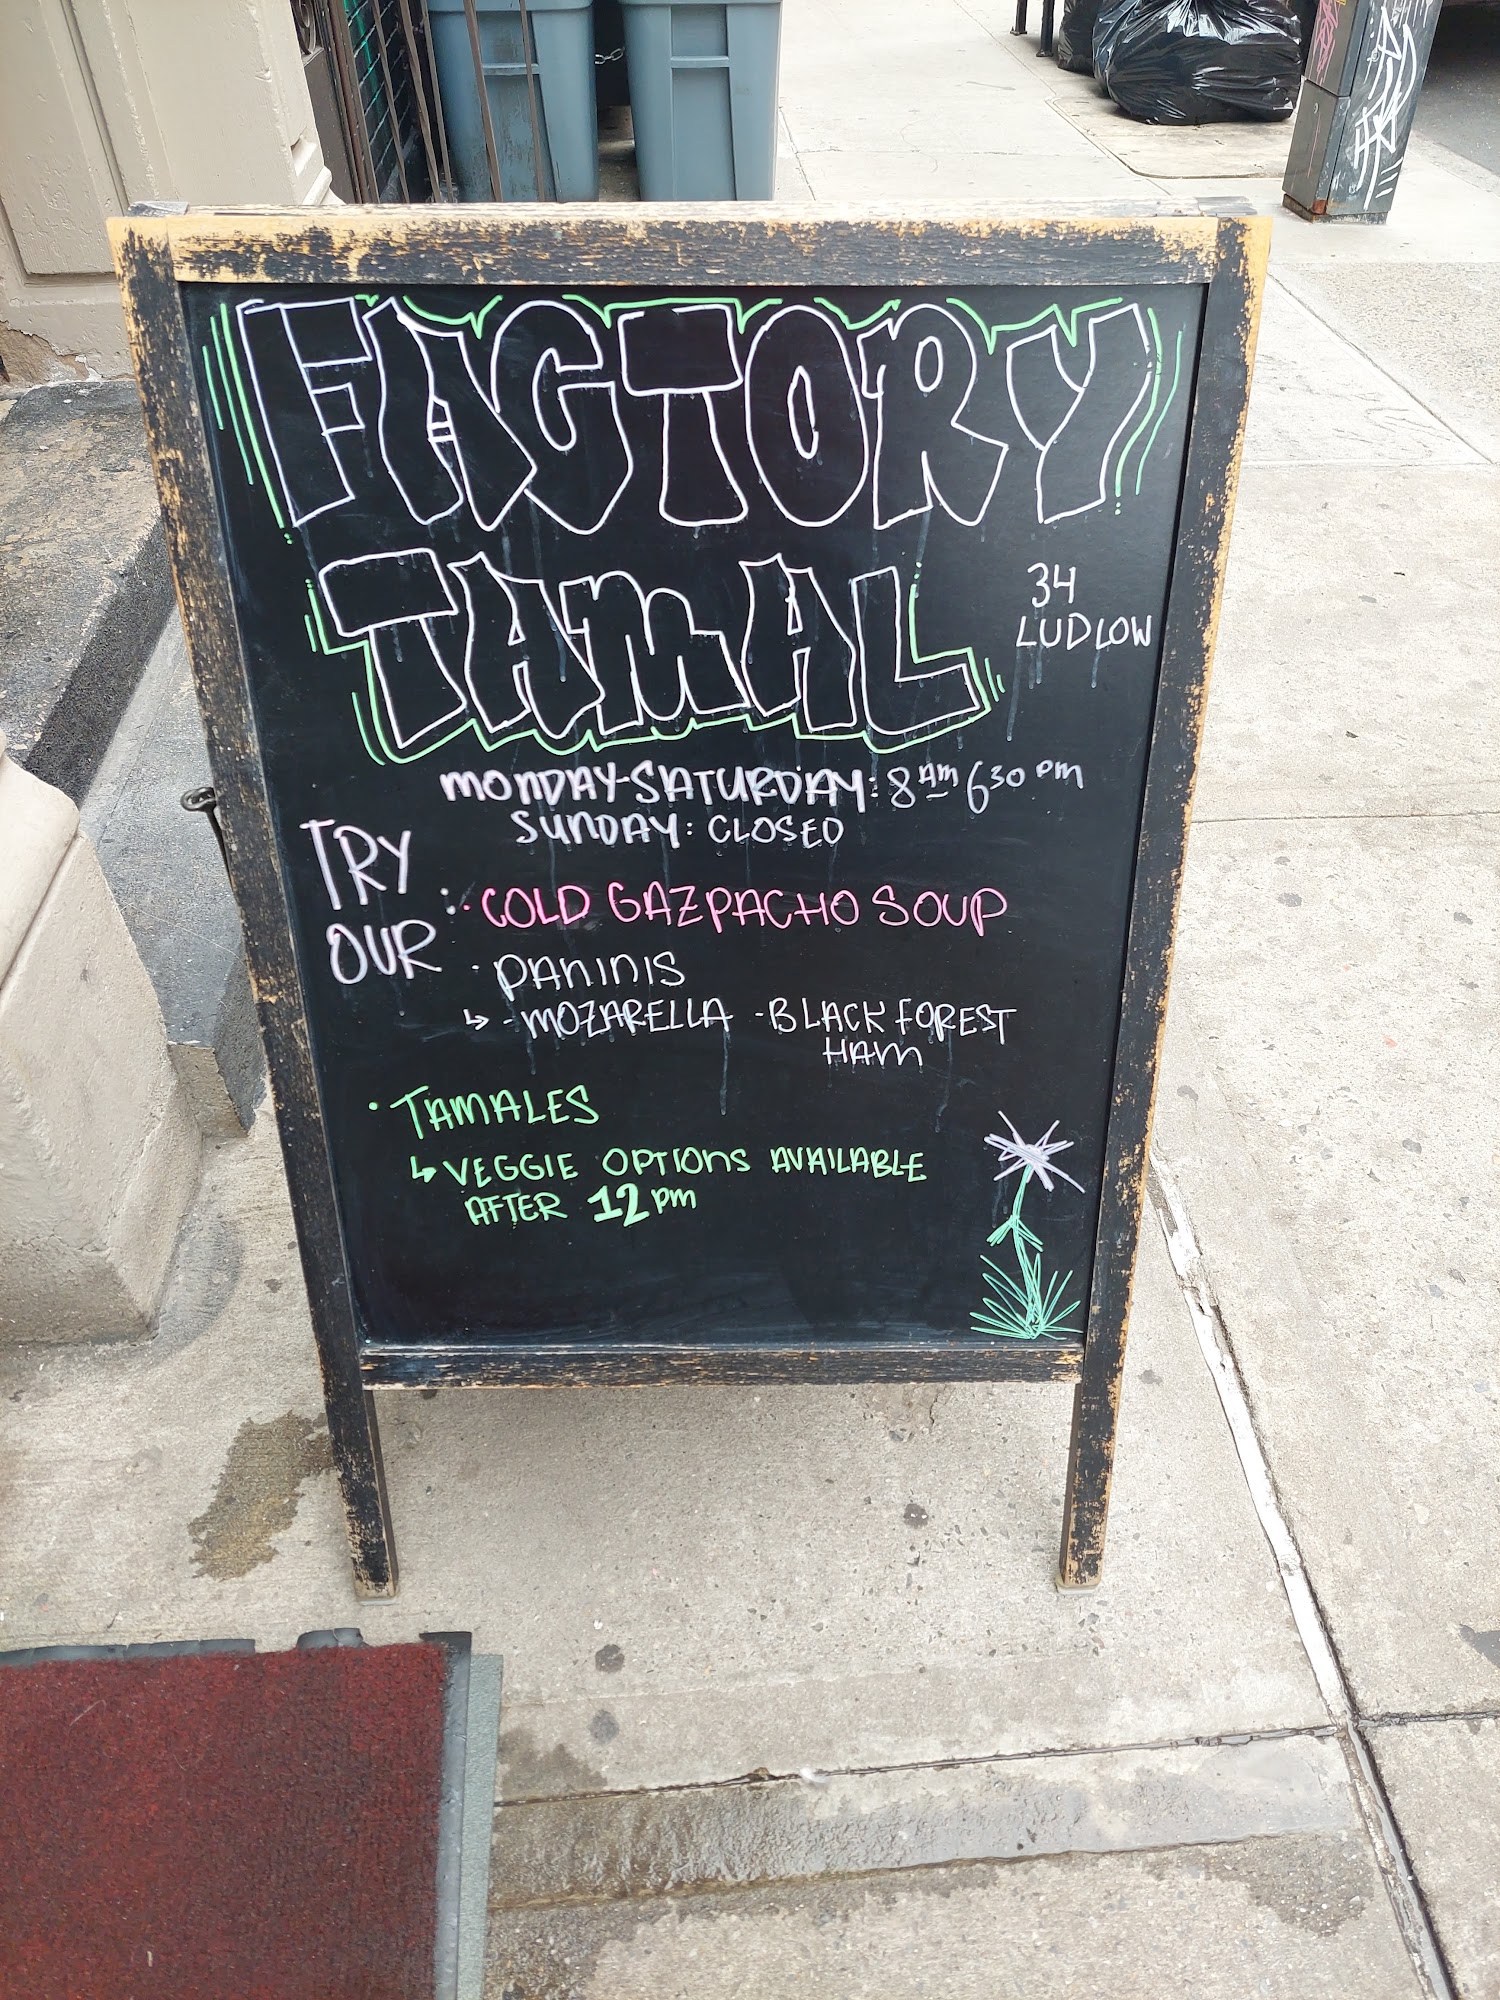 FACTORY
TAMAL
34
LUDLOW
MONDAY-SATURDAY: 8 AM 6 30 PM
SUNDAY: CLOSED
TRY
OUR
· COLD GAZPACHO SOUP
· PANINIS
↳ - MOZARELLA - BLACK FOREST
HAM
· TAMALES
↳ VEGGIE OPTIONS AVAILABLE
AFTER 12 PM